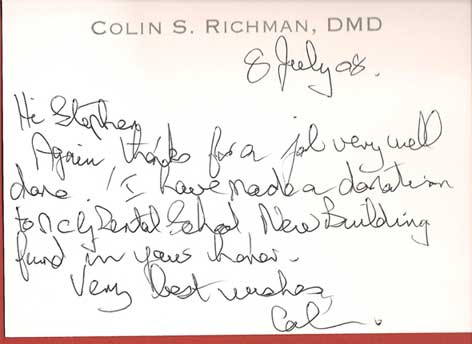 COLIN S. RICHMAN, DMD
8 July 08.
Hi Stephen
Again thanks for a job very well
done. I have made a donation
to MCG Dental School New Building
fund in your honor.
Very best wishes,
Colin.